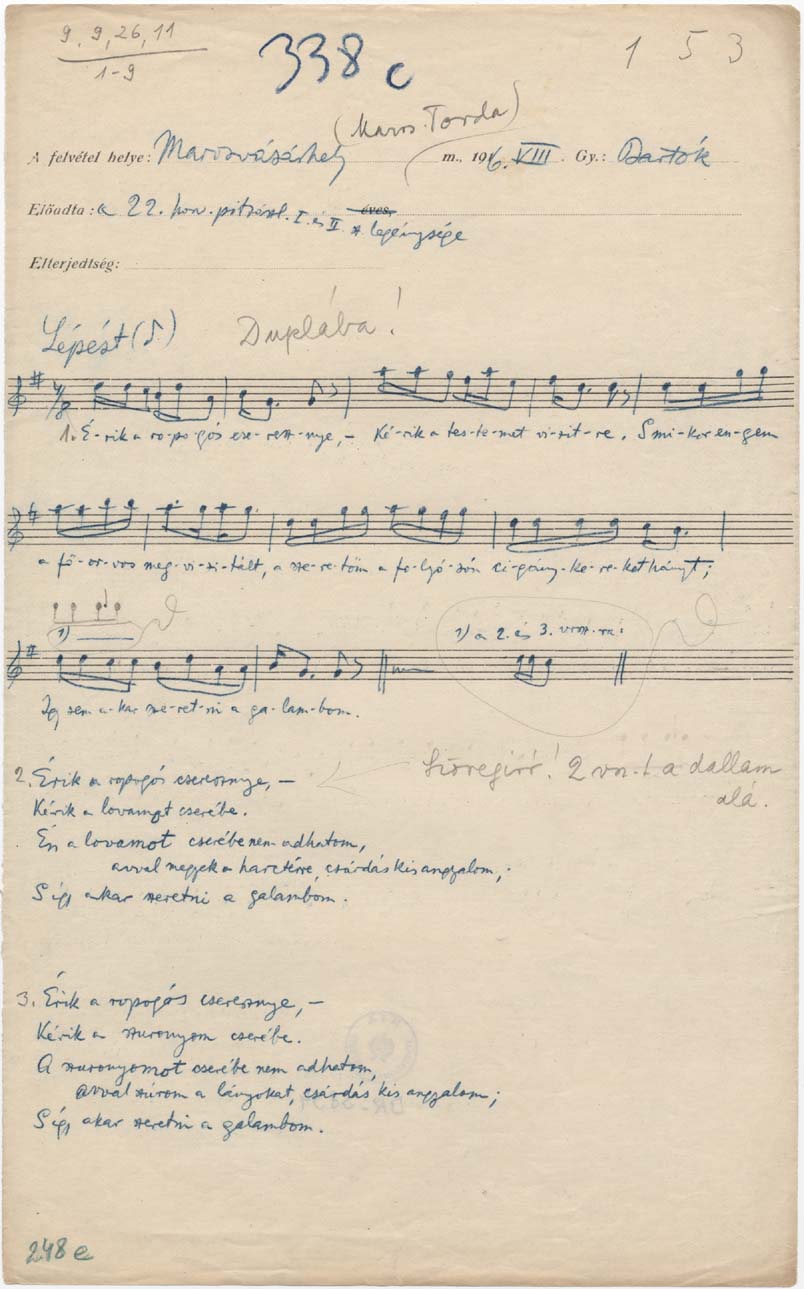 9, 9, 26, 11
1-9
338 c
1 5 3
(Maros-Torda)
A felvétel helye: Marosvásárhely m., 1916. VIII. Gy.: Bartók
Előadta: a 22. hon. pótzászl. I. és II. éves. sz. legénysége
Elterjedtség:
Lépést (♪) Duplába!
4/8
1. É-rik a ro-po-gós cse-resz-nye, – Ké-rik a tes-te-met vi-zit-re. S mi-kor en-gem
a fő-or-vos meg-vi-zi-tált, a sze-re-tőm a fo-lyó-són ci-gány-ke-re-ket hányt;
1)
1) a 2. és 3. vrsz-ra:
Így sem a-kar sze-ret-ni a ga-lam-bom.
2. Érik a ropogós cseresznye, –
Kérik a lovamot cserébe.
Én a lovamot cserébe nem adhatom,
avval megyek a harctérre, csárdás kis angyalom;
S így akar szeretni a galambom.
2 vrsz-t a dallam
alá.
3. Érik a ropogós cseresznye, –
Kérik a szuronyom cserébe.
A szuronyomot cserébe nem adhatom,
avval szúrom a lányokat, csárdás kis angyalom;
S így akar szeretni a galambom.
248 e